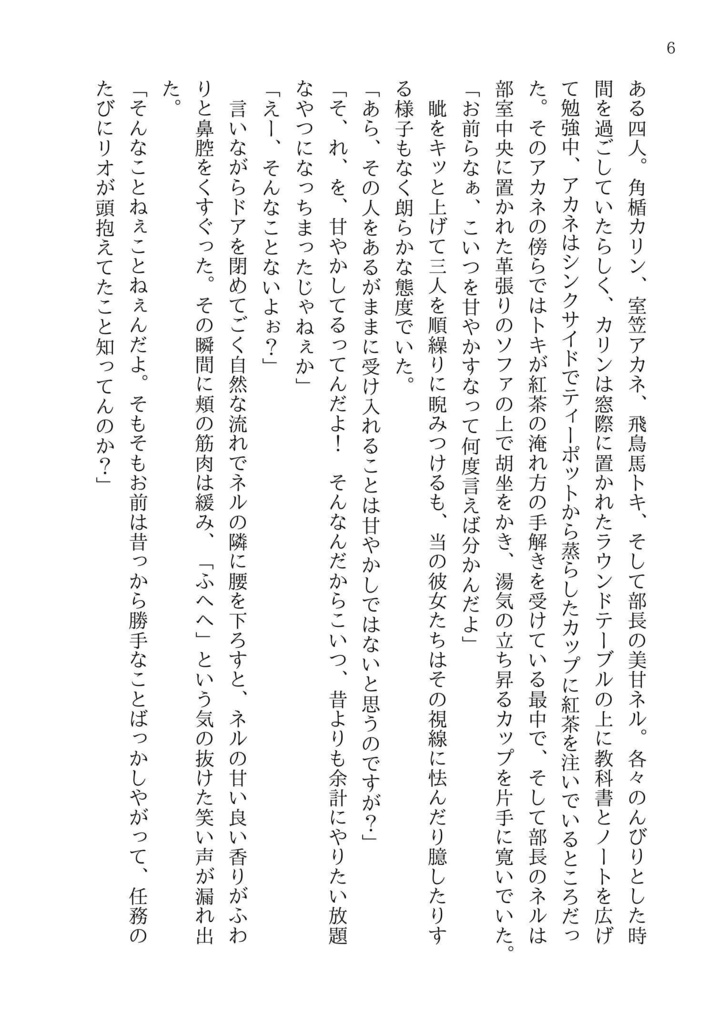 6
ある四人。角楯カリン、室笠アカネ、飛鳥馬トキ、そして部長の美甘ネル。各々のんびりとした時
間を過ごしていたらしく、カリンは窓際に置かれたラウンドテーブルの上に教科書とノートを広げ
て勉強中、アカネはシンクサイドでティーポットから蒸らしたカップに紅茶を注いでいるところだっ
た。そのアカネの傍らではトキが紅茶の淹れ方の手解きを受けている最中で、そして部長のネルは
部室中央に置かれた革張りのソファの上で胡坐をかき、湯気の立ち昇るカップを片手に寛いでいた。
「お前らなぁ、こいつを甘やかすなって何度言えば分かんだよ」
眦をキッと上げて三人を順繰りに睨みつけるも、当の彼女たちはその視線に怯んだり臆したりす
る様子もなく朗らかな態度でいた。
「あら、その人をあるがままに受け入れることは甘やかしではないと思うのですが？」
「そ、れ、を、甘やかしてるってんだよ！　そんなんだからこいつ、昔よりも余計にやりたい放題
なやつになっちまったじゃねぇか」
「えー、そんなことないよぉ？」
言いながらドアを閉めてごく自然な流れでネルの隣に腰を下ろすと、ネルの甘い良い香りがふわ
りと鼻腔をくすぐった。その瞬間に頬の筋肉は緩み、「ふへへ」という気の抜けた笑い声が漏れ出
た。
「そんなことねぇことねぇんだよ。そもそもお前は昔っから勝手なことばっかしやがって、任務の
たびにリオが頭抱えてたこと知ってんのか？」